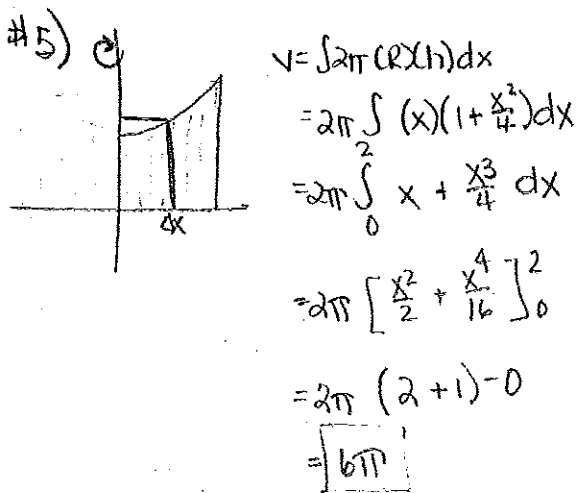 #5)
V = ∫2π(R)(h)dx
= 2π∫ (x)(1 + x²/4)dx
= 2π∫₀² x + x³/4 dx
= 2π [x²/2 + x⁴/16]₀²
= 2π (2 + 1) - 0
= 6π
Δx